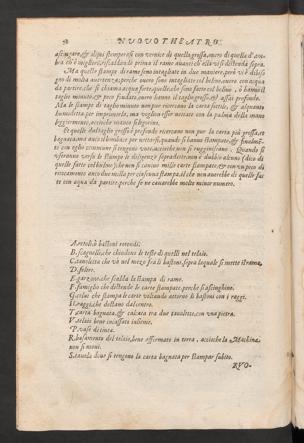 78 NUOVO THEATRO
asciugare, & alcuni stemperati con vernice di quella grossa, overo di quella d'am-
bra ch'è migliore, riscaldando prima il rame avanti che essa vi si distenda sopra.
Ma queste stampe di rame sono intagliate in due maniere, però vi è di biso
gno di molta avertenza, perche overo sono intagliate col bolino, overo con acqua
da partire, che si chiama acqua forte, quelle che sono fatte col bolino, ò hanno il
taglio minuto, & poco fondato, overo hanno il taglio grosso, & assai profondo.
Ma le stampe di taglio minuto non pur ricercano la carta sottile, & alquanto
humidetta per imprimerla, ma vogliono esser nettate con la palma della mano
leggiermente, acciochè vengano
Et quelle dal taglio grosso è profondo ricercano non pur la carta più grossa, et
bagnata, ma anco il bombace per nettarle, quando si hanno stampate, & finalmē-
te con oglio commune si tengono unte, acciochè non si rugginiscano. Quando si
useranno verso le stampe le diligenze sopradette, non è dubbio alcuno (dico di
quelle fatte col bolino) che non si cavino mille carte stampate, & con un poco di
ritoccamento anco due milla per ciascuna stampa, il che non avverebbe di quelle fat
te con acqua da partire, perche se ne cavarebbe molto minor numero.
A, rotoli, ò bastoni rotondi.
B, scagnelli, che chiudono le teste di quelli nel telaio.
C, tavoletta che và nel mezo frà li bastoni, sopra la quale si mette il rame.
D, feltro.
E, garzone, che scalda la stampa di rame.
F, famiglio che distende le carte stampate, perche si asciughino.
G, colui che stampa le carte voltando attorno li bastoni con i raggi.
H, raggi, che voltano
T, carta bagnata, & calcata tra due tavolette, con una pietra.
V, telaio bene incassato insieme.
P, vaso di tinta.
R, basamento del telaio, bene affermato in terra, acciochè la Machina
non si movi.
S, tavola dove si tengono la carta bagnata per stampar subito.
RVO-